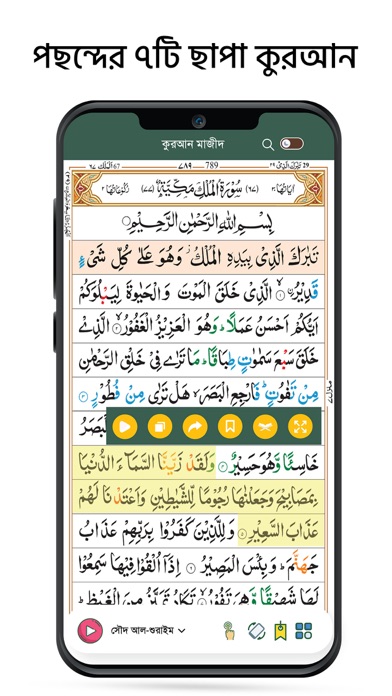 পছন্দের ৭টি ছাপা কুরআন
কুরআন মাজীদ
٦٧ الملك 67 ٧٨٩ 789 تبرك الذي ٢٩ 29
سُوْرَةُ الْمُلْكِ مَكِّيَّةٌ
بِسْمِ اللهِ الرَّحْمٰنِ الرَّحِيْمِ
تَبٰرَكَ الَّذِىْ بِيَدِهِ الْمُلْكُ ز وَهُوَ عَلٰى كُلِّ شَىْءٍ
قَدِيْرُ ۨ ۙ﴿١﴾ الَّذِىْ خَلَقَ الْمَوْتَ وَالْحَيٰوةَ لِيَبْلُوَكُمْ
اَيُّكُمْ اَحْسَنُ عَمَلًا ؕ وَهُوَ الْعَزِيْزُ الْغَفُوْرُ ۙ﴿٢﴾ الَّذِىْ
خَلَقَ سَبْعَ سَمٰوٰتٍ طِبَاقًا ؕ مَا تَرٰى فِىْ خَلْقِ الرَّحْمٰنِ
مِنْ تَفٰوُتٍ ؕ فَارْجِعِ الْبَصَرَ ۙ هَلْ تَرٰى مِنْ فُطُوْرٍ ﴿٣﴾
خَاسِئًا وَّهُوَ حَسِيْرٌ ﴿٤﴾ وَلَقَدْ زَيَّنَّا السَّمَآءَ الدُّنْيَا
بِمَصَابِيْحَ وَجَعَلْنٰهَا رُجُوْمًا لِّلشَّيٰطِيْنِ وَاَعْتَدْنَا لَهُمْ
عَذَابَ السَّعِيْرِ ﴿٥﴾ وَلِلَّذِيْنَ كَفَرُوْا بِرَبِّهِمْ عَذَابُ
جَهَنَّمَ ؕ وَبِئْسَ الْمَصِيْرُ ﴿٦﴾ اِذَآ اُلْقُوْا فِيْهَا سَمِعُوْا
لَهَا شَهِيْقًا وَّهِىَ تَفُوْرُ ۙ﴿٧﴾ تَكَادُ تَمَيَّزُ مِنَ الْغَيْظِ ؕ
সৌদ আল-শুরাইম